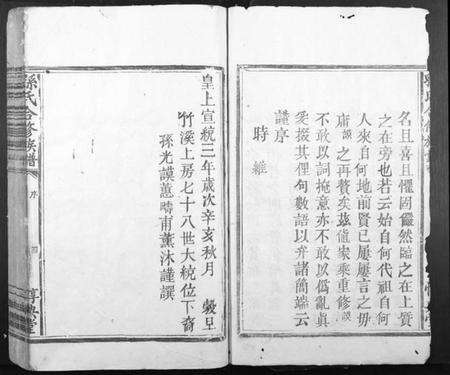 名且喜且懼因儼然臨之在上質
之在旁也若云始自何代祖自何
人來自何地前賢已屢屢言之毋
庸謨之再贅矣茲值家乘重修謨
不敢以詞掩意亦不敢以偽亂真
爰掇其俚句數語以弁諸簡端云
謹序
時維
皇上宣統三年歲次辛亥秋月 穀旦
竹溪上房七十八世大統位下裔
孫光謨蕙疇甫薰沐謹撰
孫氏合修族譜
序